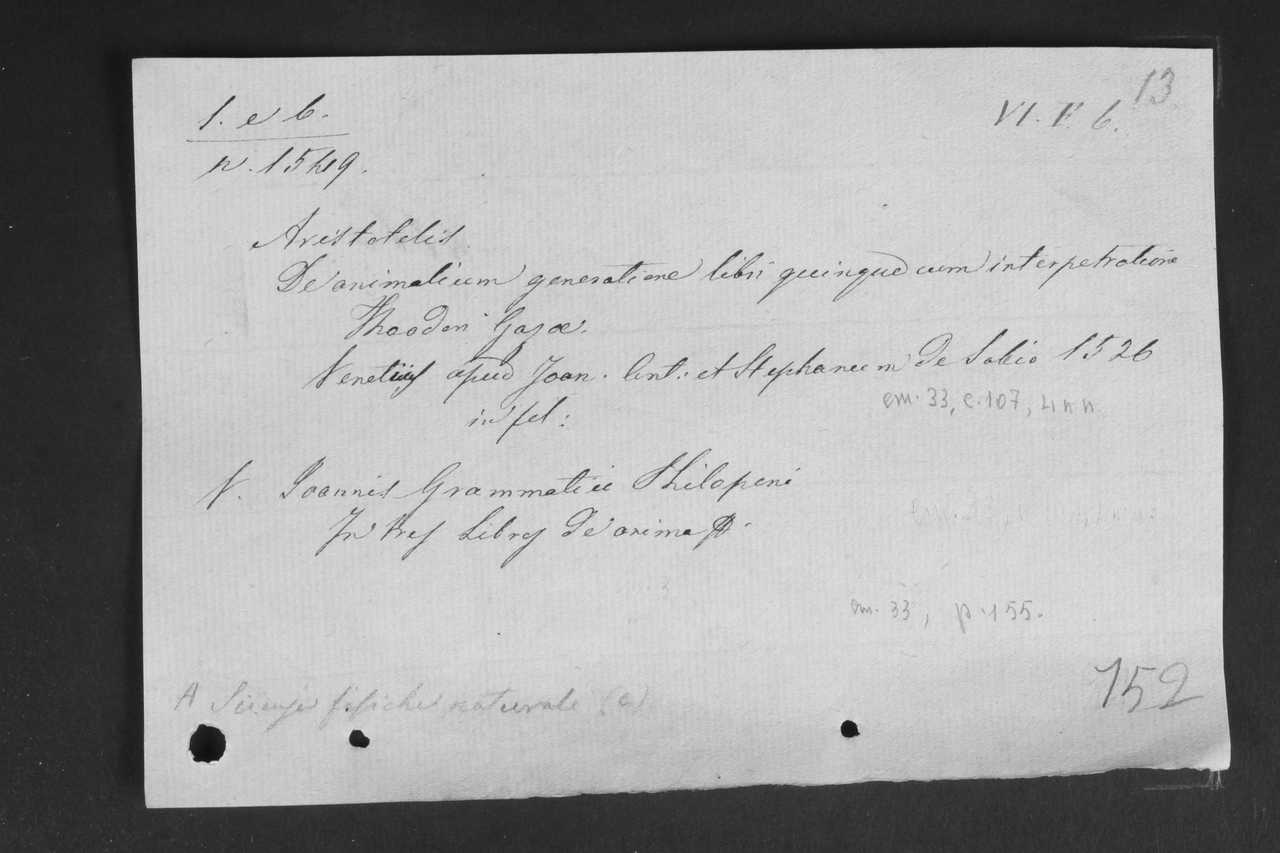 1. e 6.
VI. F. 6.
13
n. 1549.
Aristotelis
De animalium generatione libri quinque cum interpetratione
Theodori Gazæ.
Venetiis apud Joan. Ant: et Stephanum de Sabio 1526
cm. 33, c. 107, 4 n n.
in fol:
V. Joannis Grammatici Philoponi
In tres Libros De anima
cm. 33, p. 155.
152
A Scienze fisiche naturale (a)